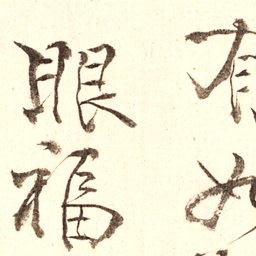 有如
眼福